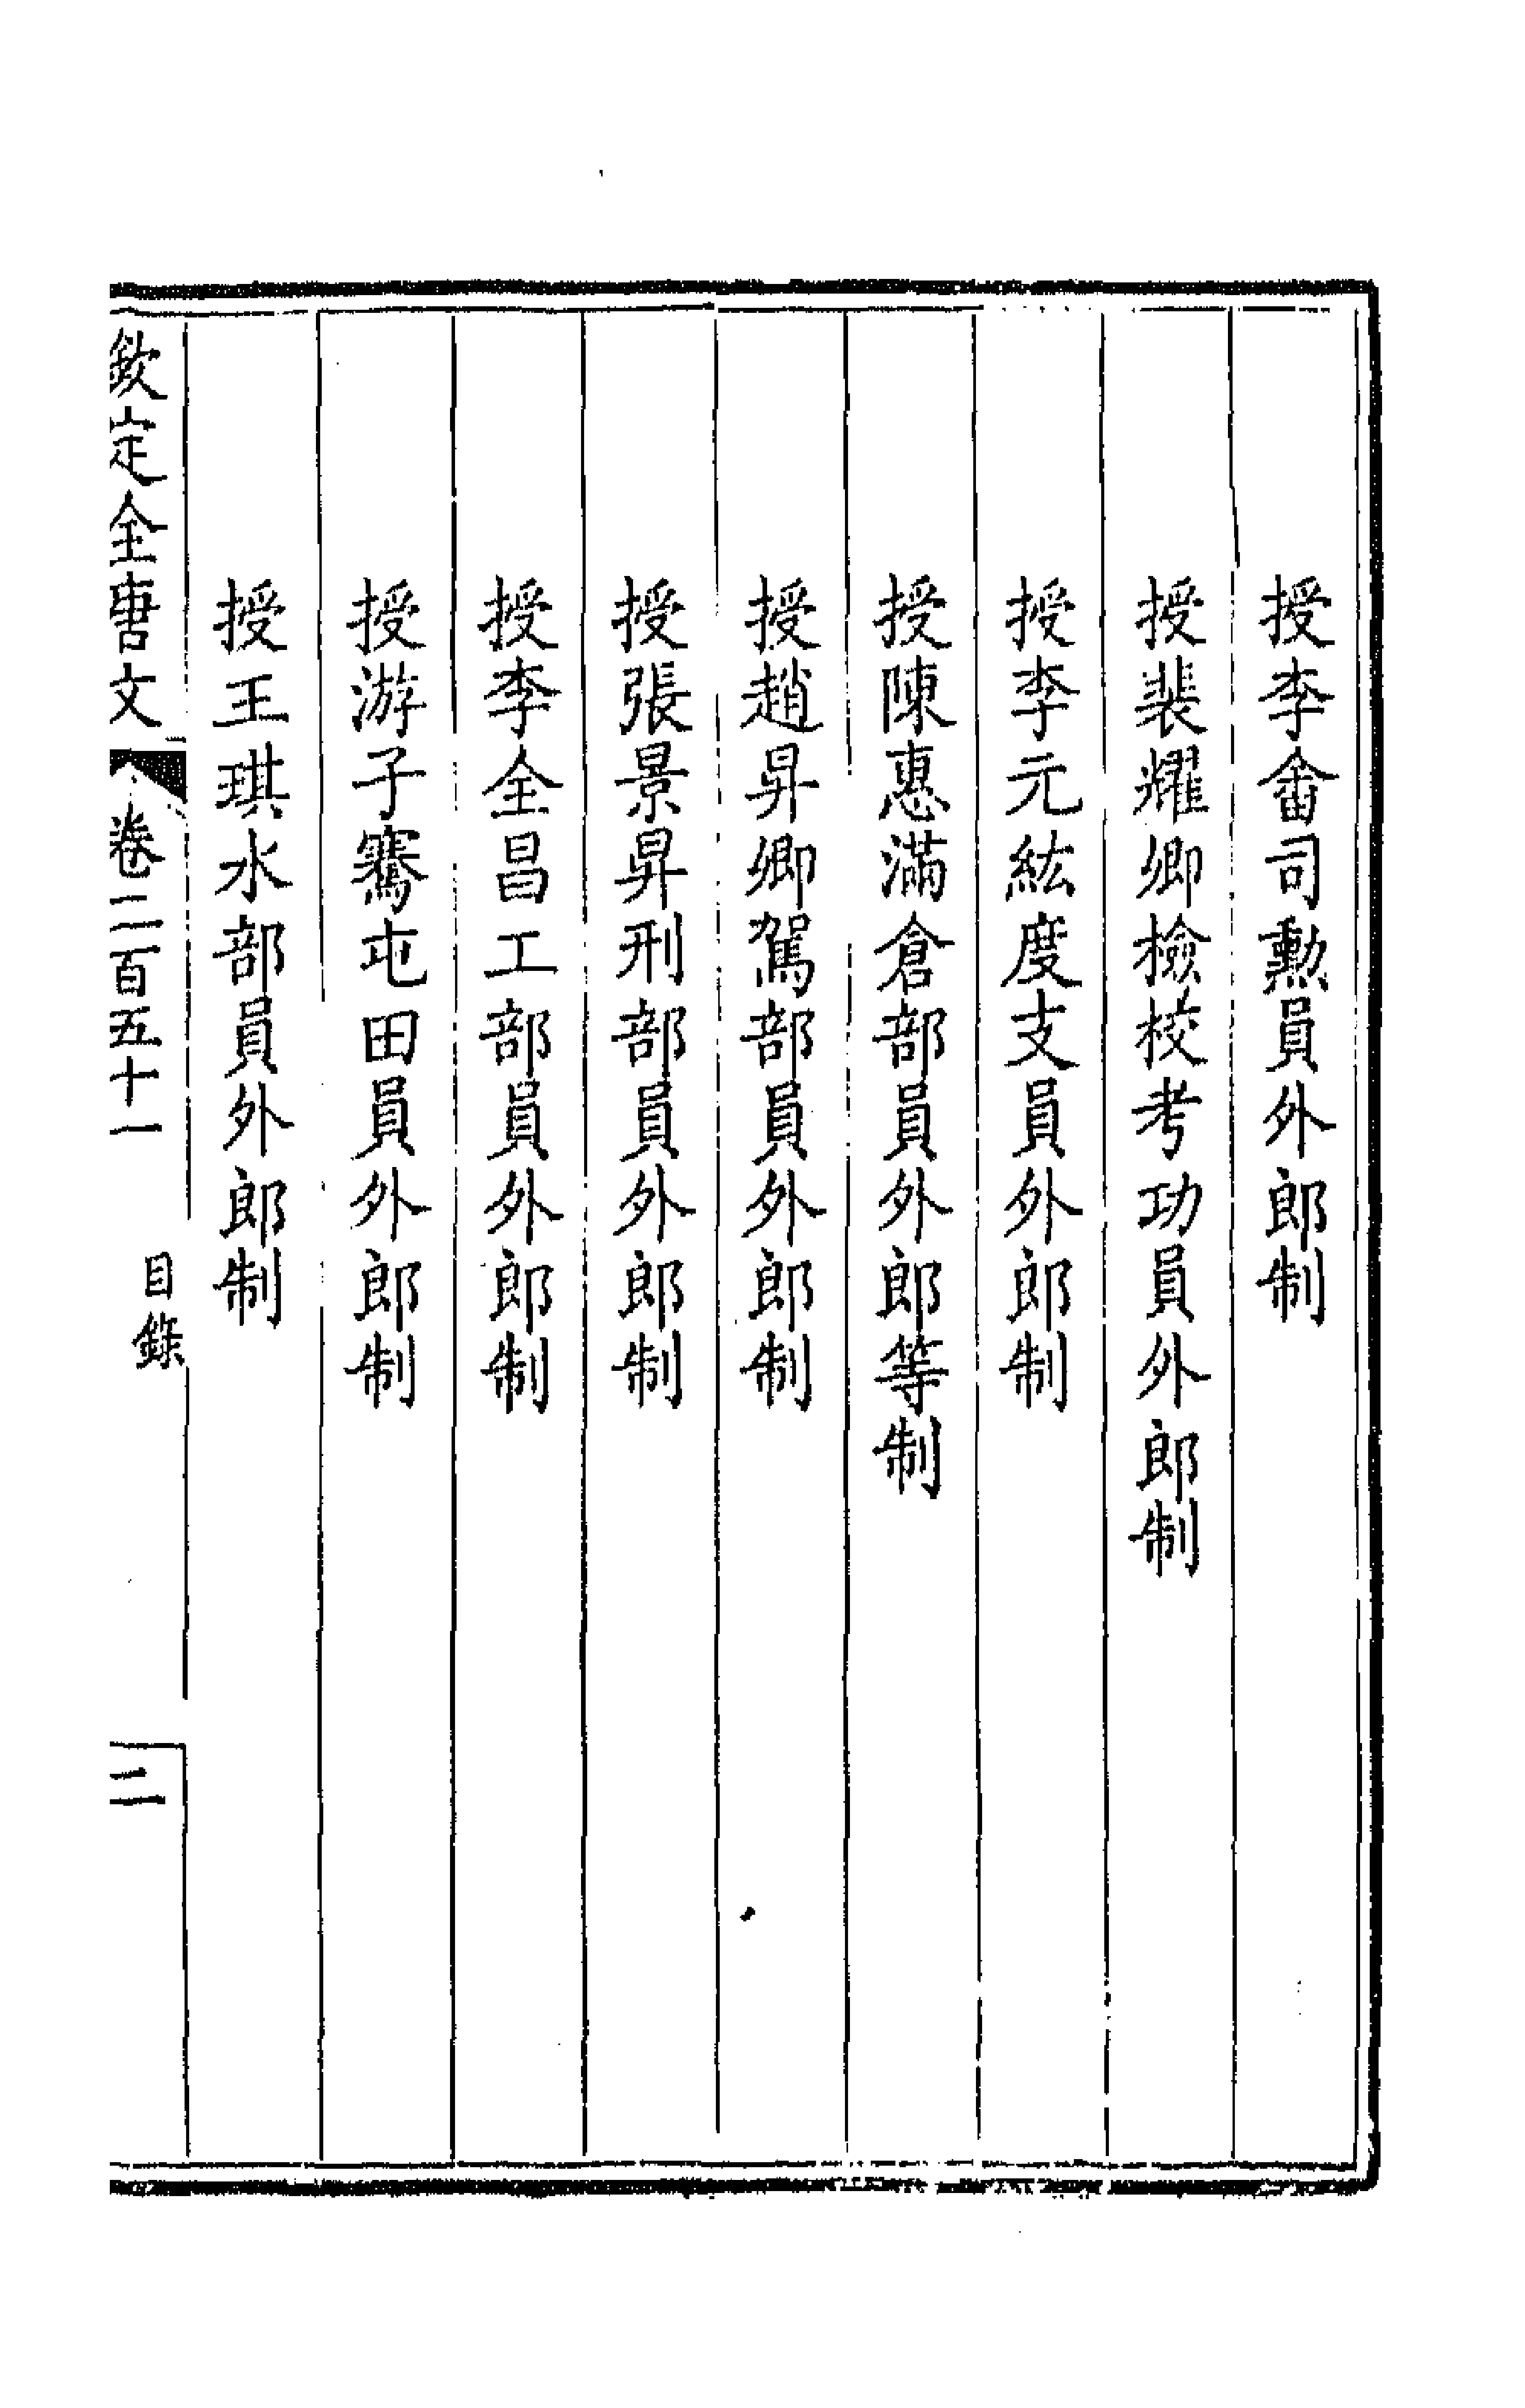 授李畬司勳員外郎制
授裴耀卿檢校考功員外郎制
授李元紘度支員外郎制
授陳惠滿倉部員外郎等制
授趙昇卿駕部員外郎制
授張景昇刑部員外郎制
授李全昌工部員外郎制
授游子騫屯田員外郎制
授王琪水部員外郎制
欽定全唐文
卷二百五十一
目錄
二